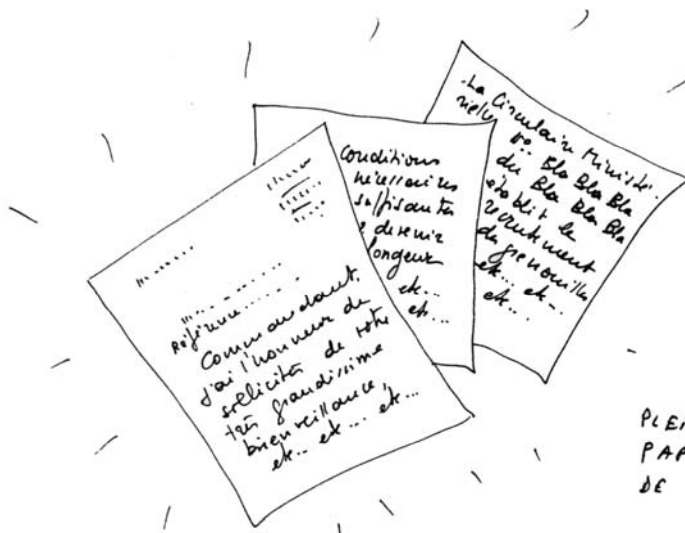 Référence.....
Commandant,
J'ai l'honneur de
solliciter de votre
très grandissime
bienveillance,
etc... etc... etc...
Conditions
nécessaires
suffisantes
devenir
longeur
etc...
etc...
-La Circulaire Ministé-
rielle
N°: Bla Bla Bla
du Bla Bla Bla
établit le
recrutement
des grenouilles
etc... etc...
etc...
PLE
PAP
DE